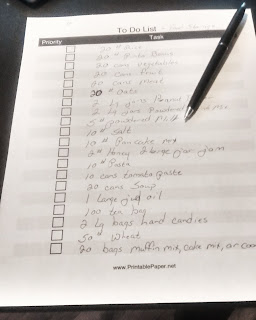 To Do List - Food Storage
Priority Task
20 # Rice
20 # Pinto Beans
20 cans vegetables
20 cans fruit
20 cans meat
20 # Oats
2 Lg jars Peanut
2 Lg jars Powdered mix
5 # powdered milk
10 # Salt
10 # Pancake mix
2 # Honey, 2 large jar jam
10 # Pasta
10 cans tomato paste
20 cans Soup
1 large jug oil
100 tea bag
2 Lg bags hard candies
50 # Wheat
20 bags muffin mix, cake mix, or
www.PrintablePaper.net